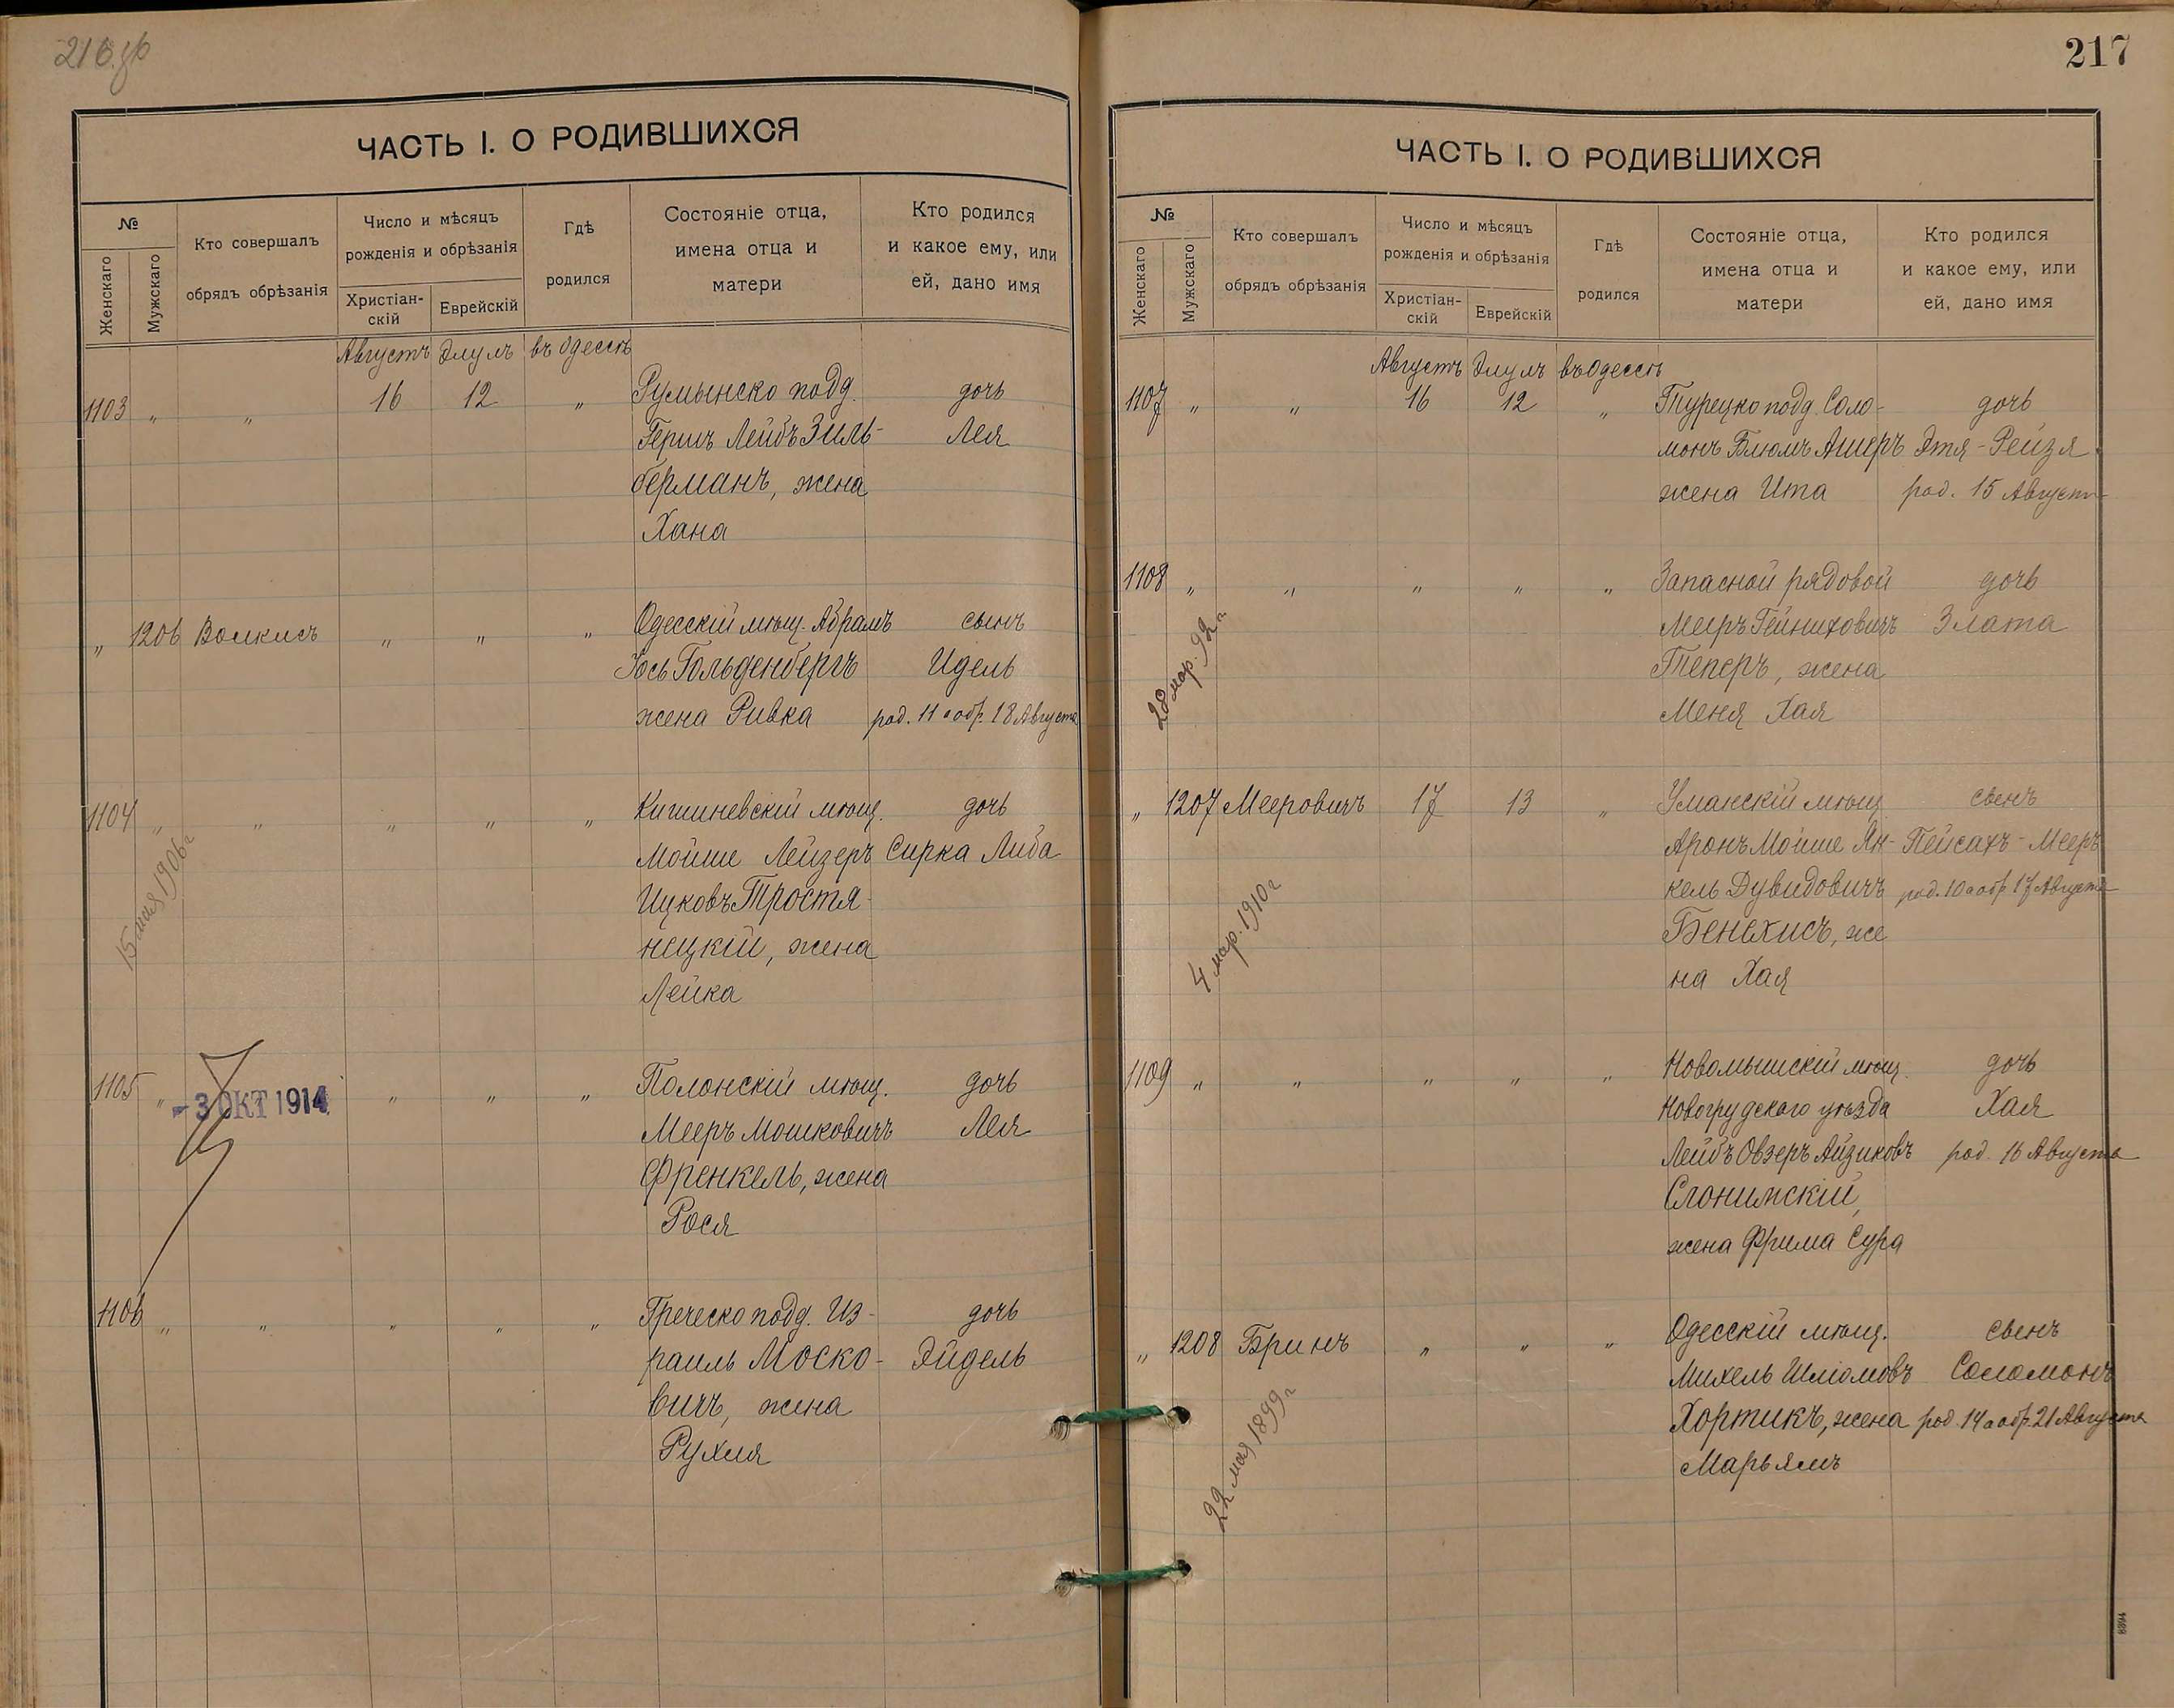 216 об
ЧАСТЬ I. О РОДИВШИХСЯ
№
Женскаго
Мужскаго
Кто совершалъ
обрядъ обрѣзанія
Число и мѣсяцъ
рожденія и обрѣзанія
Христіан-
скій
Еврейскій
Гдѣ
родился
Состояніе отца,
имена отца и
матери
Кто родился
и какое ему, или
ей, дано имя
Августъ Элулъ въ Одессѣ
1103 " " 16 12 " Румынско подд. дочь
Гершъ Лейбъ Зиль- Лея
берманъ, жена
Хана
" 1206 Волкисъ " " " Одесскій мѣщ. Абрамъ сынъ
Іось Гольденбергъ Идель
жена Ривка род. 11 а обр. 18 Августа
1104 " " " " " Кишиневскій мѣщ. дочь
Мойше Лейзеръ Сирка Либа
Ицковъ Тростя-
нецкій, жена
Лейка
15 мая 1906 г
1105 " " " " Полонскій мѣщ. дочь
- 3 ОКТ 1914
Мееръ Мошковичъ Лея
Френкель, жена
Рося
1106 " " " " " Греческо подд. Из- дочь
раиль Моско- Эйдель
вичъ, жена
Рухля
217
ЧАСТЬ I. О РОДИВШИХСЯ
№
Женскаго
Мужскаго
Кто совершалъ
обрядъ обрѣзанія
Число и мѣсяцъ
рожденія и обрѣзанія
Христіан-
скій
Еврейскій
Гдѣ
родился
Состояніе отца,
имена отца и
матери
Кто родился
и какое ему, или
ей, дано имя
Августъ Элулъ въ Одессѣ
1107 " " 16 12 " Турецко подд. Соло- дочь
монъ Блюмъ Ашеръ Этя-Рейзя
жена Ита род. 15 Августа
1108 " " " " " Запасной рядовой дочь
Мееръ Гейниховичъ Злата
Теперъ, жена
Меня Хая
28 мар. 92 г
" 1207 Мееровичъ 17 13 " Уманскій мѣщ. сынъ
Аронъ Мойше Ян- Пейсахъ-Мееръ
кель Дувидовичъ род. 10 а обр 17 Августа
Бенехисъ, же
на Хая
4 мар. 1910 г
1109 " " " " " Новомышскій мѣщ. дочь
Новогрудскаго уѣзда Хая
Лейбъ Овзеръ Айзиковъ род. 16 Августа
Слонимскій,
жена Фрима Сура
" 1208 Бринъ " " " Одесскій мѣщ. сынъ
Михель Шліомовъ Соломонъ
Хортикъ, жена род 14 а обр. 21 Августа
Марьямъ
22 мая 1899 г